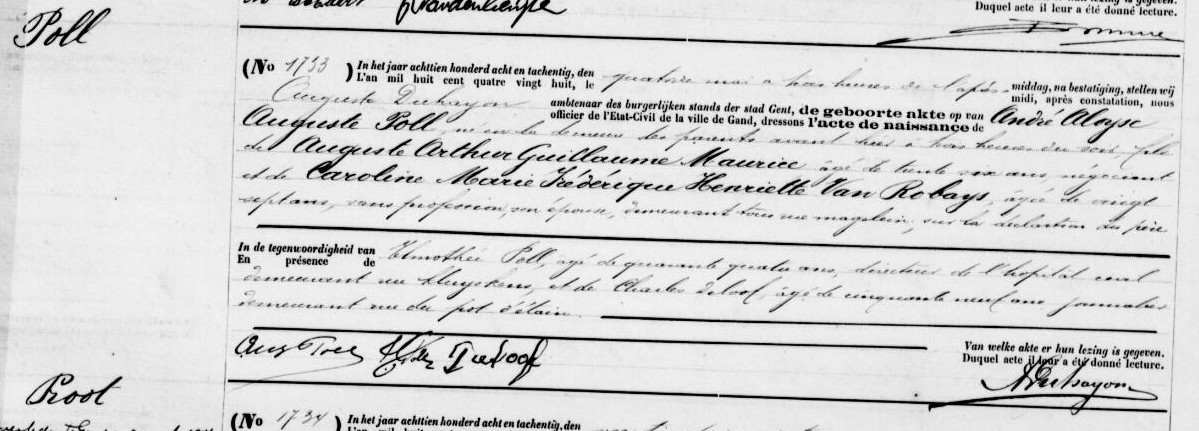 Vandenheufle
is gegeven.
Duquel acte il leur a été donné lecture.
Poll
(No 1733) In het jaar achttien honderd acht en tachentig, den
L'an mil huit cent quatre vingt huit, le quatorze mai à trois heures de l'après middag, na bestatiging, stellen wij
midi, après constatation, nous
Auguste Duhayon ambtenaar des burgerlijken stands der stad Gent, de geboorte akte op van
officier de l'Etat-Civil de la ville de Gand, dressons l'acte de naissance de André Aloyse
Auguste Poll, né en la demeure des parents avant hier à trois heures du soir, fils
de Auguste Arthur Guillaume Maurice âgé de trente six ans, négociant
et de Caroline Marie Frédérique Henriette Van Robays, âgée de vingt
sept ans, sans profession, son épouse, demeurant tous rue magelein, sur la déclaration du père
In de tegenwoordigheid van
En présence de Thimothée Poll, âgé de quarante quatre ans, directeur de l'hopital civil
demeurant rue Huyskens, et de Charles Deloof, âgé de cinquante neuf ans journalier
demeurant rue du pot d'étain.
Aug Poll Deloof
Van welke akte er hun lezing is gegeven.
Duquel acte il leur a été donné lecture.
ADuhayon
Proot
(No 1734) In het jaar achttien honderd acht en tachentig, den